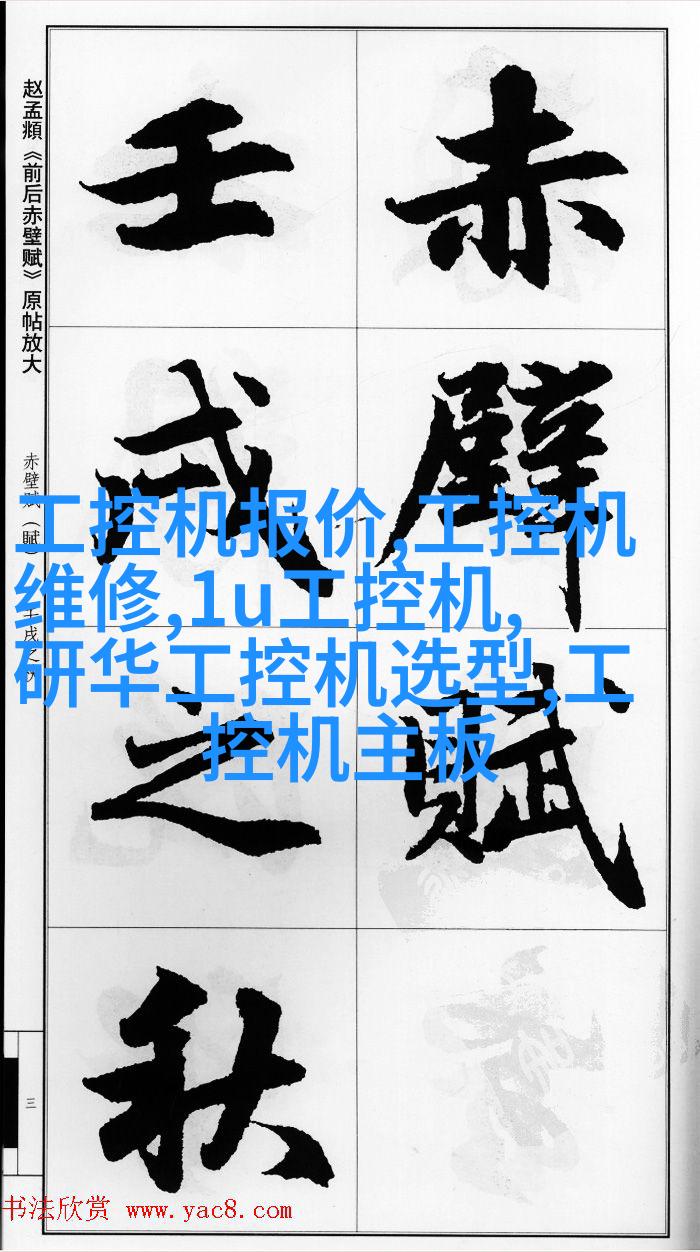 赤壁赋
壬戌之秋
赵孟頫《前后赤壁赋》原帖放大
赤壁赋（赋）壬戌之秋
工控机报价,工控机
维修,1u工控机,
研华工控机选型,工
控机主板
三
书法欣赏 www.yac8.com